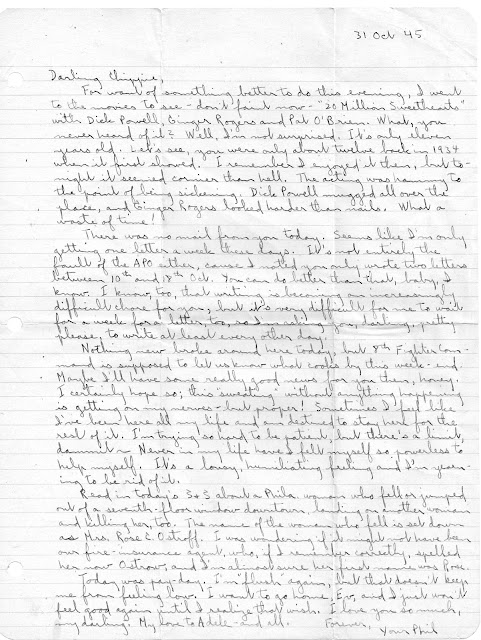 31 Oct 45
Darling Chippie,
For want of something better to do this evening, I went
to the movies to see - don't faint now - "20 Million Sweethearts"
with Dick Powell, Ginger Rogers and Pat O'Brien. What, you
never heard of it? Well, I'm not surprised. It's only eleven
years old. Let's see, you were only about twelve back in 1934
when it first showed. I remember I enjoyed it then, but to-
night it seemed cornier than hell. The acting was hammy to
the point of being sickening. Dick Powell mugged all over the
place, and Ginger Rogers looked harder than nails. What a
waste of time!
There was no mail from you today. Seems like I'm only
getting one letter a week these days. It's not entirely the
fault of the APO either, cause I noted you only wrote two letters
between 10th and 18th Oct. You can do better than that, baby, I
know. I know, too, that writing is becoming an increasingly
difficult chore for you, but it's very difficult for me to wait
for a week for a letter, too, so I'm asking you, darling, pretty
please, to write at least every other day.
Nothing new broke around here today, but 8th Fighter Com-
mand is supposed to let us know what cooks by this week-end.
Maybe I'll have some really good news for you then, honey.
I certainly hope so; this "sweating" without anything happening
is getting on my nerves - but proper! Sometimes I feel like
I've been here all my life and am destined to stay here for the
rest of it. I'm trying so hard to be patient, but there's a limit,
dammit ~ Never in my life have I felt myself so powerless to
help myself. It's a lousy, humiliating feeling and I'm yearn-
ing to be rid of it.
Read in today's S & S about a Phila. woman who fell or jumped
out of a seventh-floor window downtown, landing on another woman
and killing her, too. The name of the woman who fell is set down
as Mrs. Rose C. Ostroff. I was wondering if it might not have been
our fire-insurance agent, who, if I remember correctly, spelled
her name Ostrow, and I'm almost sure her first name was Rose.
Today was pay-day. I'm "flush" again, but that doesn't keep
me from feeling low. I want to go home, Ev, and I just won't
feel good again until I realize that wish. I love you so much,
my darling. My love to Adele - and all. Forever,
Your Phil